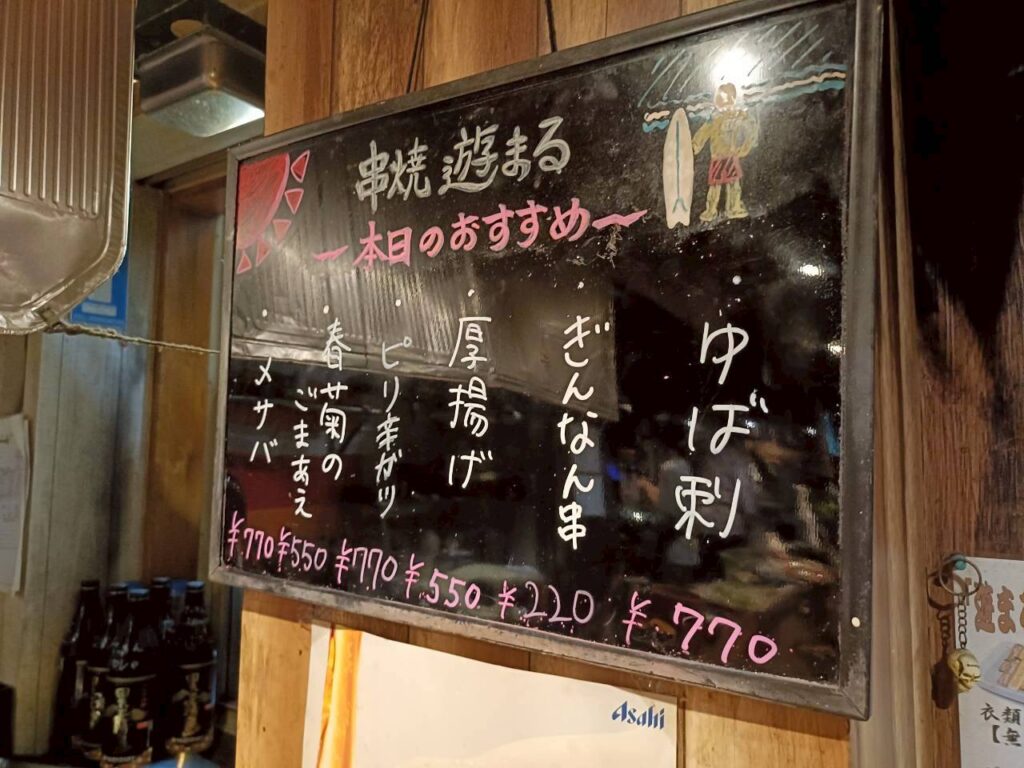 串焼 遊まる
〜本日のおすすめ〜
・ゆば刺
¥770
・ぎんなん串
¥220
・厚揚げ
¥550
・ピリ辛がり
¥770
・春菊の
ごまあえ
¥550
・メサバ
¥770
Asahi
遊ま
衣類
【無